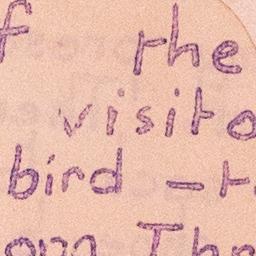 f the
visito
bird - t